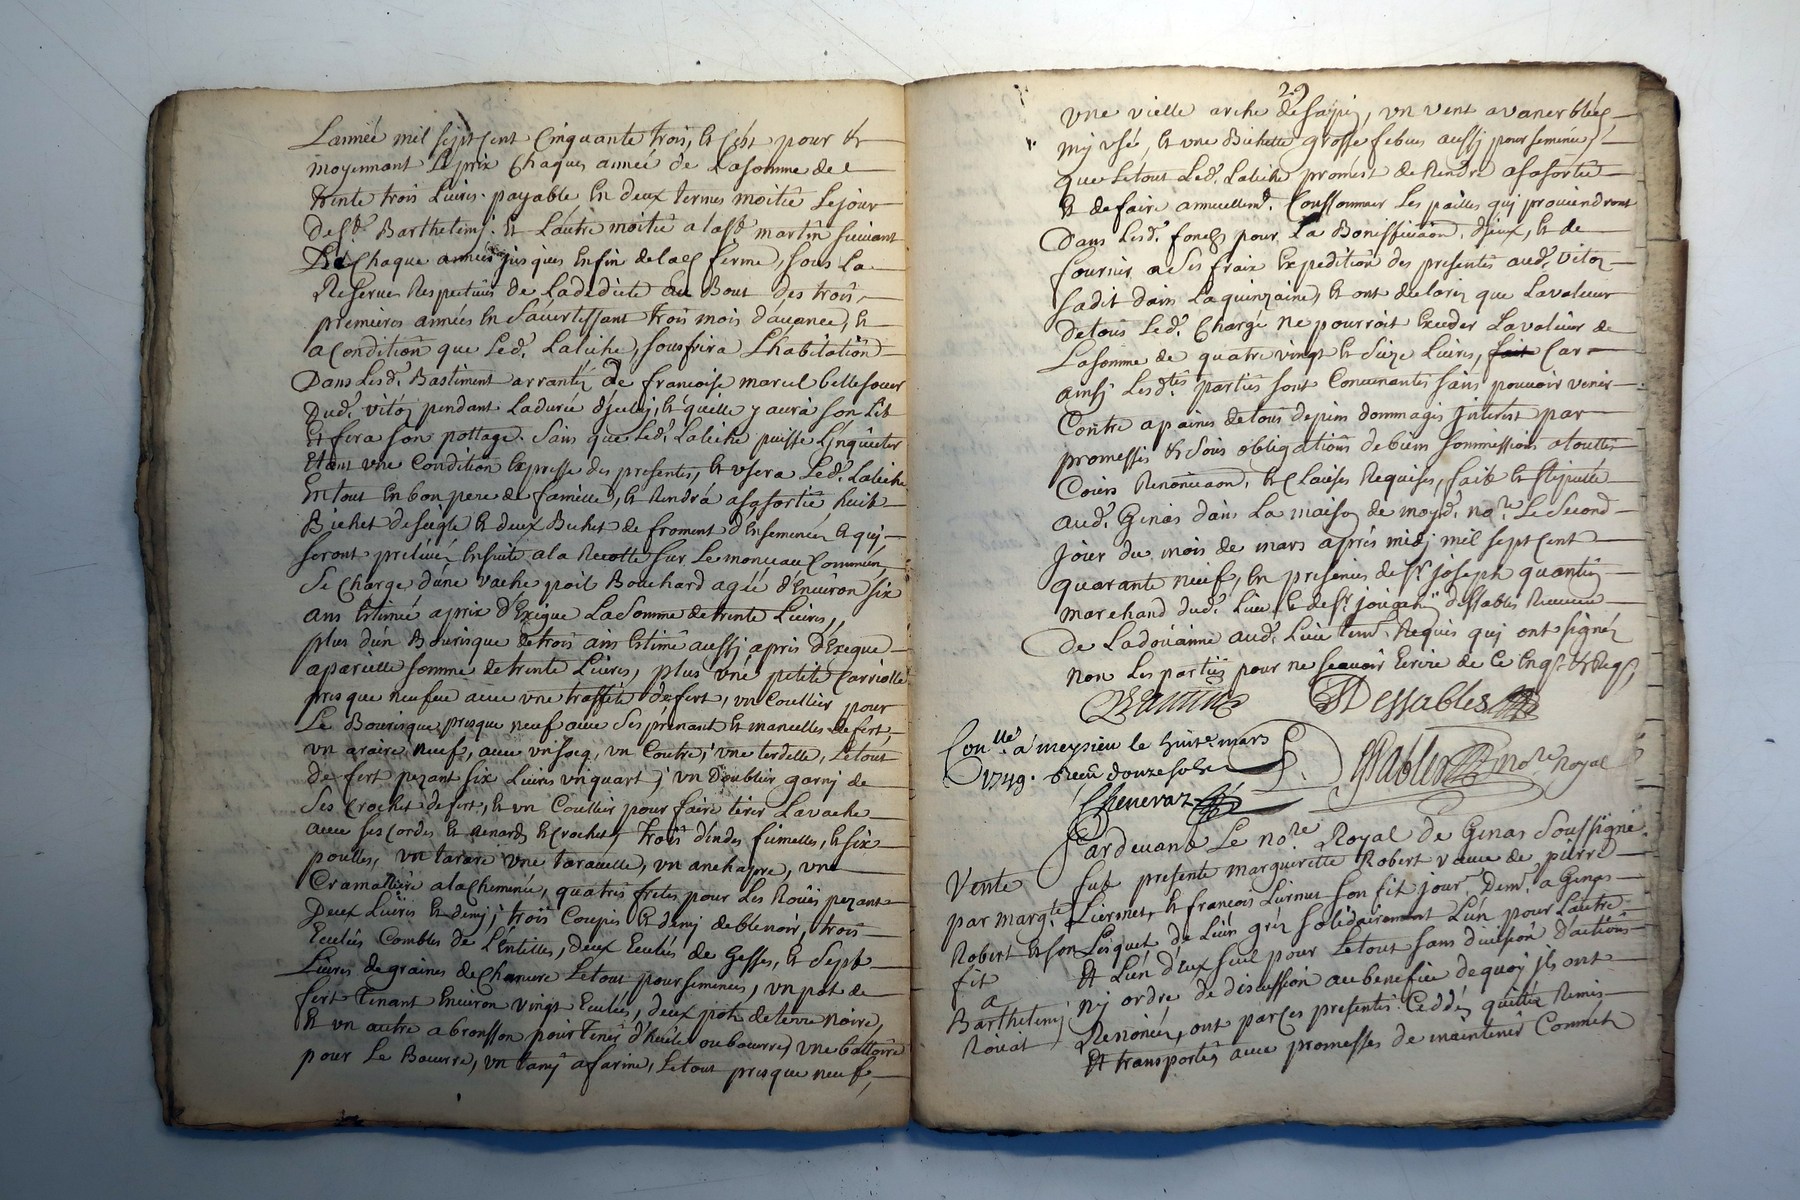 Lanneé mil sept cent cinquante trois, et c'est pour et
moyennant le prix chaques anneé de la somme de
trente trois Livres payable en deux termes moitié le jour
de st Barthelemj et Lautre moitié a la st martin suivant
chaque anneé jusques enfin de lad ferme, sous la
Reserve Respective de la dedicte au Bout des trois
premieres anneés en s'avertissant trois mois d'avance, et
a condition que Led. Laleche, souffrira L'habitation
Dans Lesd. Bastiment de francoise marcel belle soeur
Dud. vitoz pendant La dureé d'jceluj, et qu'elle y aura son Lit
et fera son pottage sans que Led. Laleche puisse L'jnquieter
Etant une condition expresse des presentes, et usera Led. Laleche
En tout en bon pere de famille, et Rendra a sa sortie huit
Bichet de seigle et deux Bichet de froment d'Ensemencé et qui
seront prelevé ensuite a la Recolte sur Le monceau commun,
Se charge d'une vache poil Bouchard ageé d'Environ six
ans Estimeé a prix d'Exigue La somme de trente Livres,
plus d'un Bourisque de trois ans Estimé aussj a pris d'Exegue
a pareille somme de trente Livres, plus une petite Carriolle
presque neufve avec une de fert, un Coullier pour
Le Bourisque presque neuf avec ses prenant et mancelles de fert
un araire neuf, avec un socq, un Coutre, une tordelle, Le tout
de fert pezant six Livres un quart, un Doublier garnj de
ses crochet de fert, et un Coullier pour faire tirer La vache
avec ses cordes et et crochet, trois d'indes fumelles, et six
poulles, un tarare une taravelle, un , une
Cramalliere a la cheminée, quatres frétes pour Les Roües pezant
Deux Livres et demj, trois Coupes et demj de bled noir, trois
Eculés Combles de L'entilles, deux Eculés de Gesses, et sept
Livres de graines de chanvre Le tout pour semences, un pot de
fert tenant Environ vingt Eculés, deux pots de terre noire,
Et un autre a brousson pour tenir d'huile ou bourre, une battoire
pour Le Beurre, un tamj a farine, Le tout presque neuf,
29
une vielle arche de sapin, un vent a vaner bled
mj usé, et une Bichette grosse febves aussj pour semences
que Le tout Led. Laleche promest de Rendre a sa sortie
Et de faire annuellemt. Conssommer Les pailles quj proviendront
Dans Lesd. fonds pour La Boniffication d'jceux, et de
fournir a ses fraix Expedition des presentes aud. vitoz
sadit dans La quinzaine, et ont declarez que La valeur
de tous Led. Chargé ne pourroit Exceder La valeur de
La somme de quatre vingt et seize Livres, Car
ainsj Lesdtes parties sont Convenantes sans pouvoir venir
Contre a paines de tous depens dommages jnterest par
promesses et sous obligations de biens sommissions a touttes
Cours Renonciaon. et Clauses Requises, fait et stipullé
aud. Genas dans La maison de moyd. nore. Le second
jour du mois de mars aprés midj mil sept cent
quarante neuf, En presences de sr. joseph quantin
marchand dud. Lieu et de sr. dessables Receveur
de La doüanne aud. Lieu temr. Requis quj ont signéz
non Les parties pour ne scavoir Ecrire de ce Enqs. et Reqs,
Quantin Dessables
Conllé a meyzieu le huite mars
1749. Receu douze sols
Essables nore Royal
Chenevaz
Pardevant Le nore Royal de Genas Soussigné
Vente fut presente marguerette Robert vauve de pierre
par margte Liernet, et francois Liernet son fit jourr. Demt. a Genas
Robert et son Lesquel de Leur gréz solidairement L'un pour L'autre
fit Et L'un d'eux seul pour Le tout sans division d'actions
a nj ordre de discussion au benefice de quoj jls ont
Barthelemj Renoncéz, ont par ces presentes Ceddéz quittéz Remis
Roiat Et transportés avec promesses de maintenir Commet